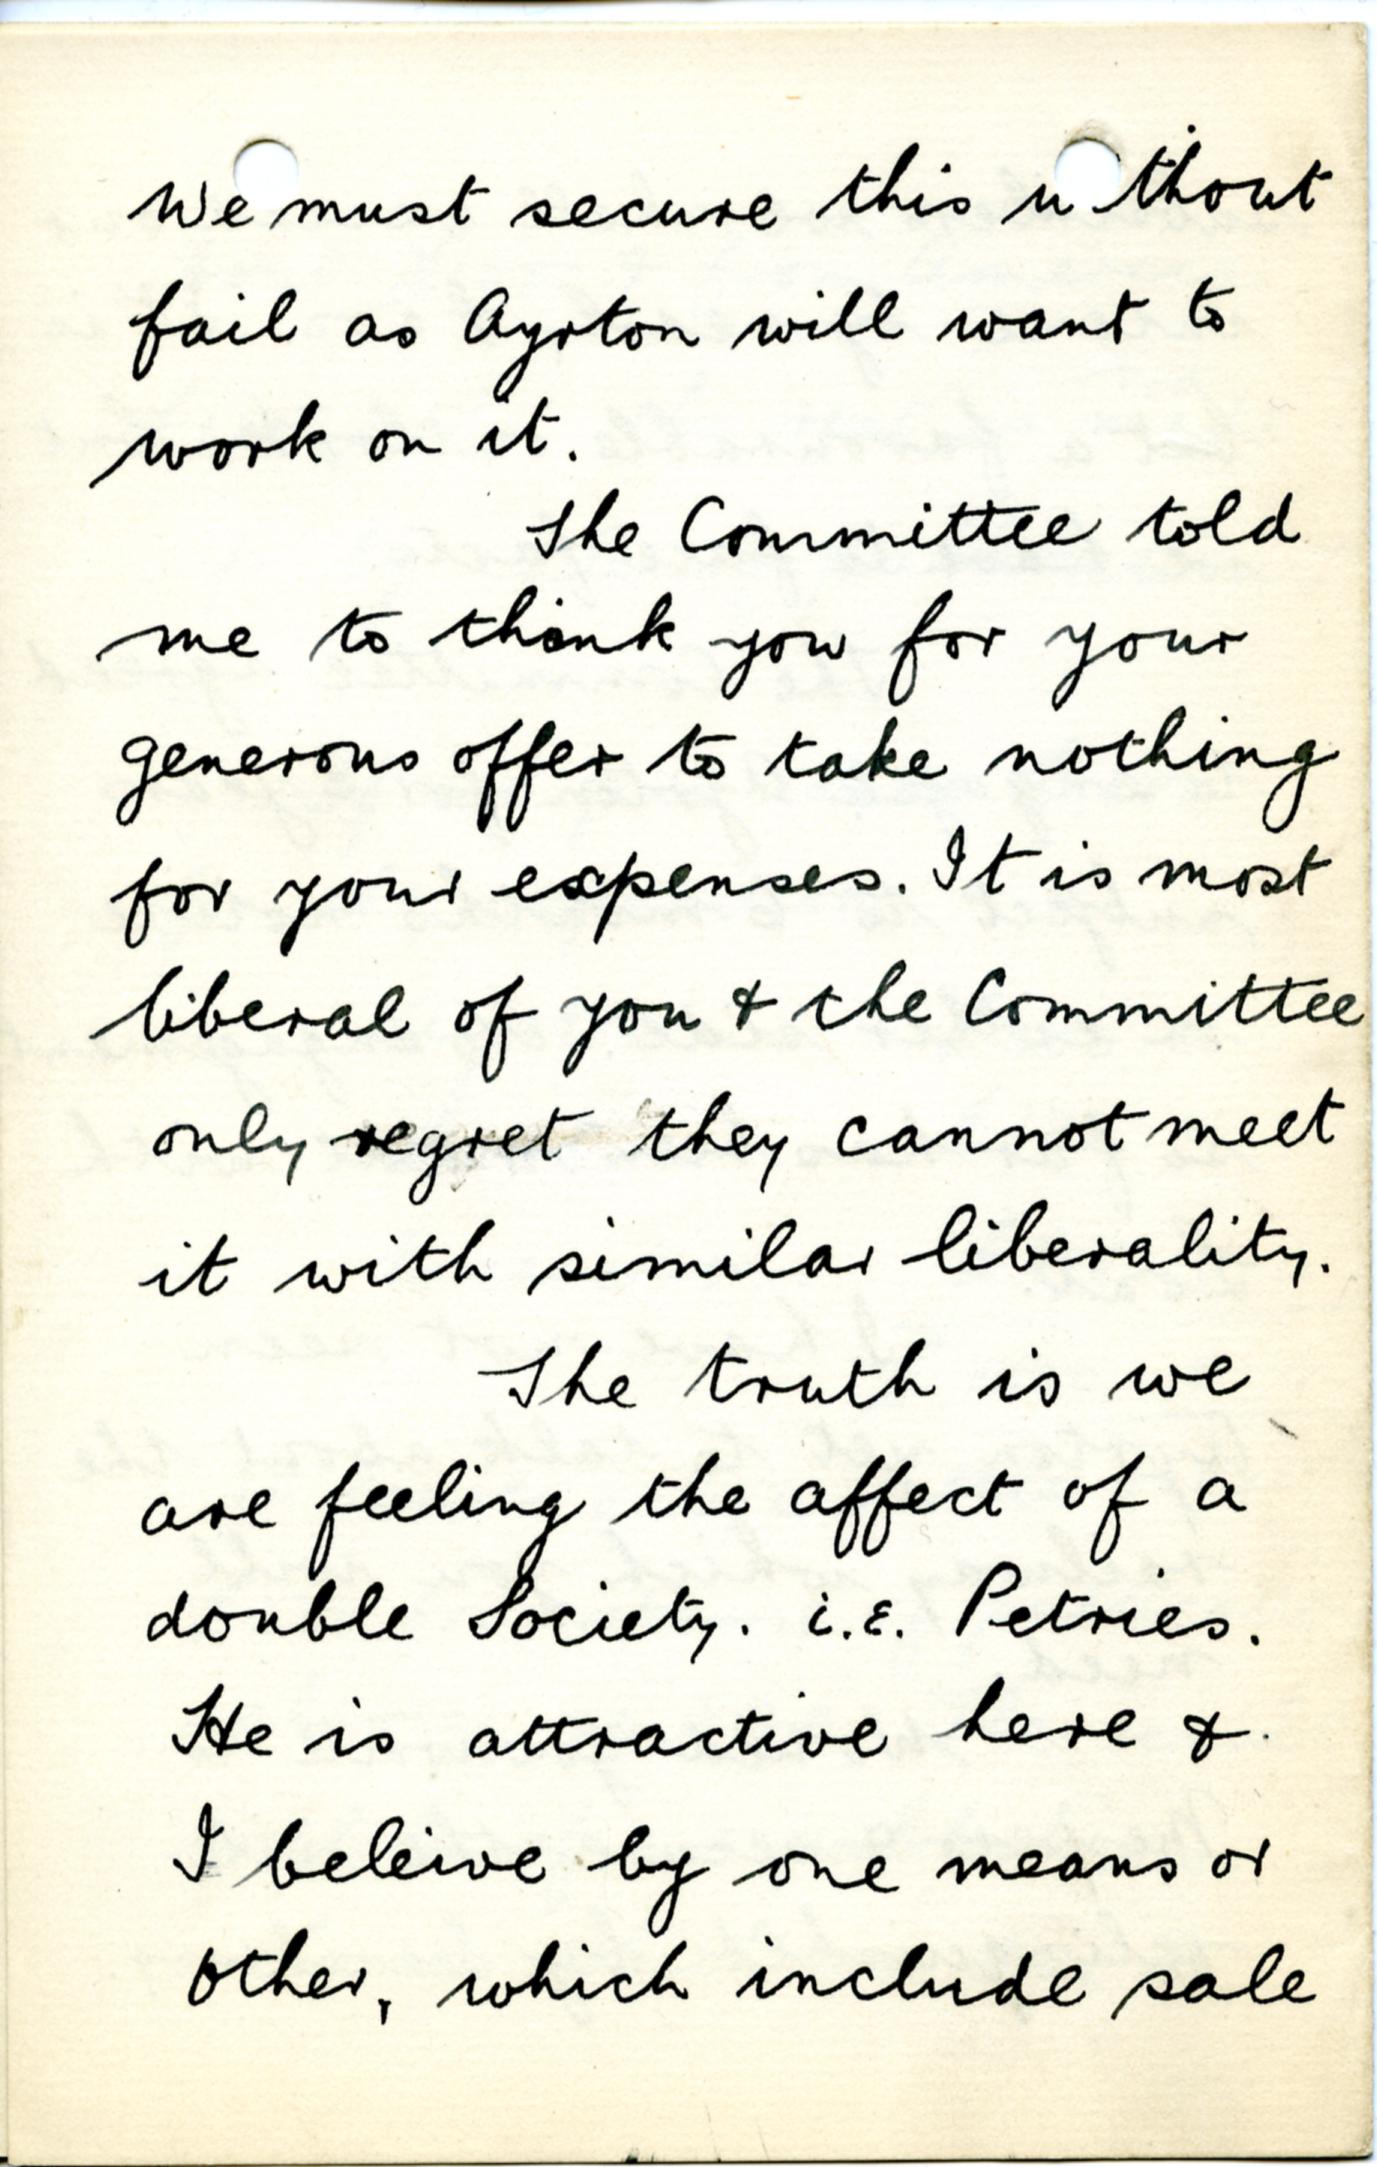 We must secure this without
fail as Ayrton will want to
work on it.
The Committee told
me to thank you for your
generous offer to take nothing
for your expenses. It is most
liberal of you & the Committee
only regret they cannot meet
it with similar liberality.
The truth is we
are feeling the affect of a
double Society. i.e. Petries.
He is attractive here &.
I beleive by one means or
other, which include sale